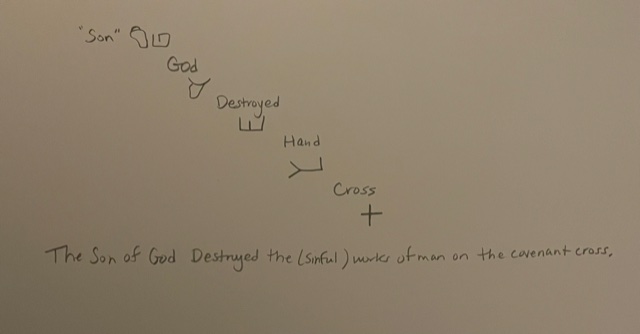 "Son"
God
Destroyed
Hand
Cross
The Son of God Destroyed the (sinful) works of man on the covenant cross.